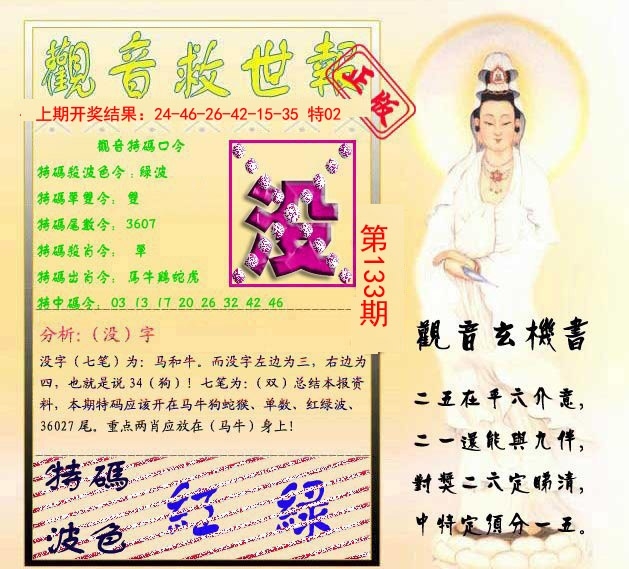 觀音救世報
正版
上期开奖结果：24-46-26-42-15-35 特02
觀音特碼口令
特碼殺波色令：綠波
特碼單雙令： 雙
特碼尾數令： 3607
特碼殺肖令： 單
特碼出肖令： 馬牛鷄蛇虎
特中碼令： 03 13 17 20 26 32 42 46
没
第133期
分析:（没）字
没字（七笔）为：马和牛。而没字左边为三，右边为
四，也就是说 34（狗）！七笔为：（双）总结本报资
料，本期特码应该开在马牛狗蛇猴、单数、红绿波、
36027 尾。重点两肖应放在（马牛）身上！
特碼
波色
紅 綠
觀音玄機書
二五在平六介意，
二一還能與九伴，
對獎二六定睇清，
中特定須分一五。